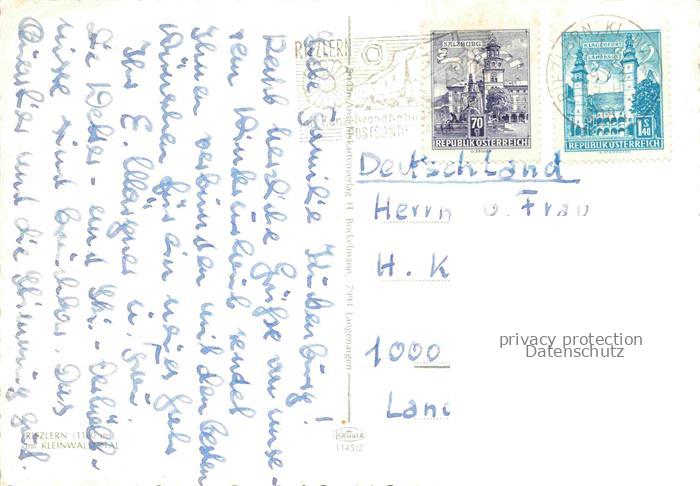 Liebe Familie
Recht herzliche Grüße von unse-
rem Winterurlaub sendet
Ihnen verbunden mit den besten
Wünschen für ein neues Jahr
Ihr E. u. Frau
Die Wetter- und Ski-
nisse sind Das
Quartier und die Stimmung gut.
RIEZLERN (1100 m)
im KLEINWALSERTAL
Kartenverlag H. Bockelmann, 7994 Langenargen
KRÜGER
1145/2
RIEZLERN
POSTSONDE
SALZBURG
70 g
REPUBLIK ÖSTERREICH
KLAGENFURT
LANDHAUS
1.40 S
REPUBLIK ÖSTERREICH
RIEZLERN KL
Deutschland
Herrn u. Frau
H. K
1000
Lan
privacy protection
Datenschutz